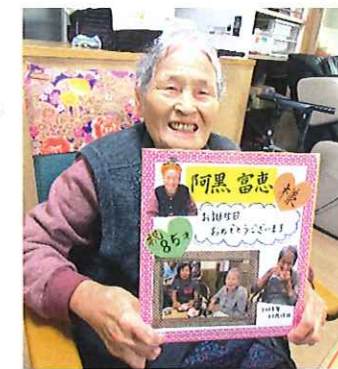 阿黒 富恵
様
お誕生日
おめでとうございます
祝
85才